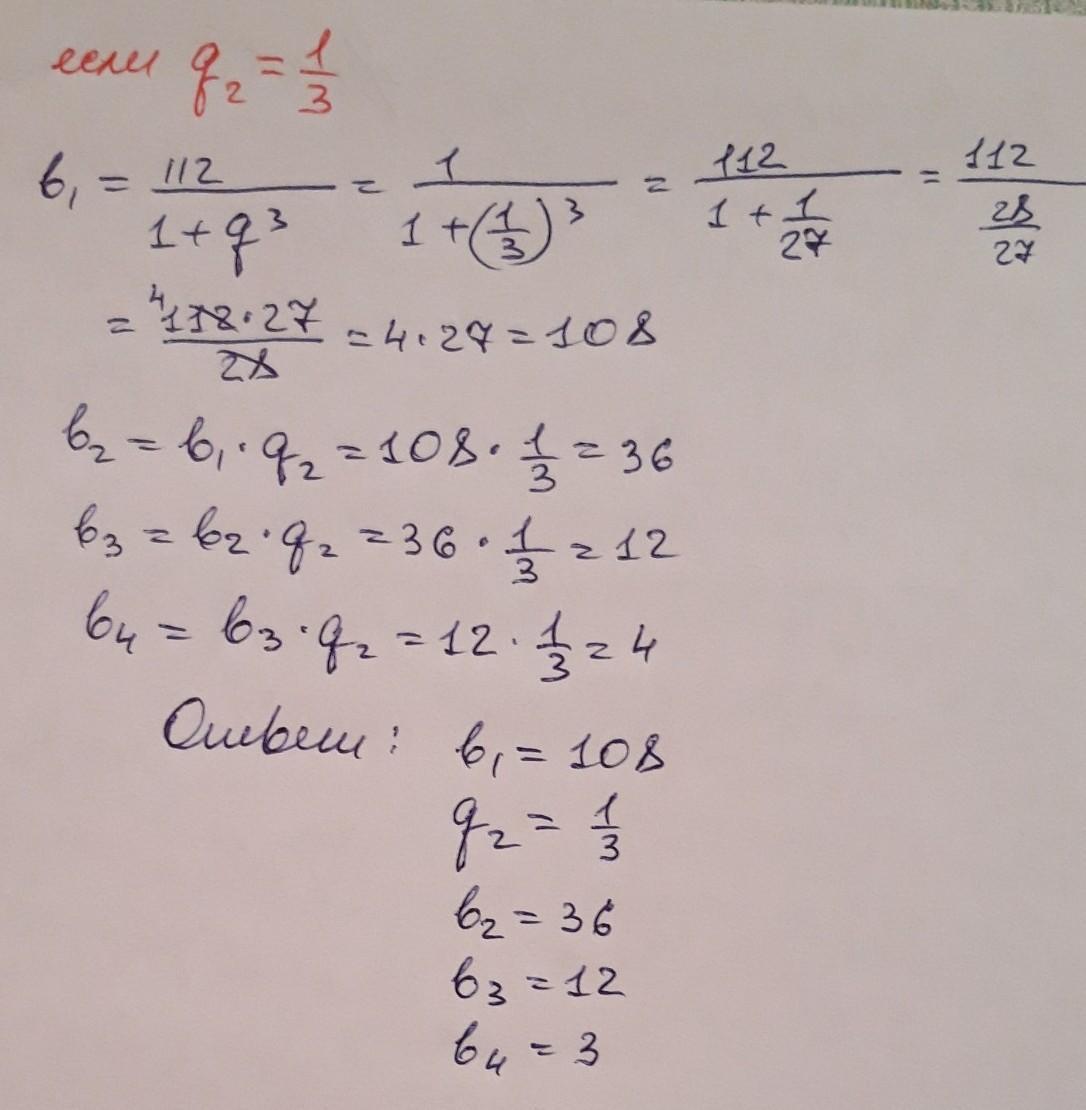 если q₂ = 1/3
b₁ = 112/(1 + q³) = 1/(1 + (1/3)³) = 112/(1 + 1/27) = 112/(28/27)
= ⁴112·27/28 = 4·27 = 108
b₂ = b₁·q₂ = 108·1/3 = 36
b₃ = b₂·q₂ = 36·1/3 = 12
b₄ = b₃·q₂ = 12·1/3 = 4
Ответ: b₁ = 108
q₂ = 1/3
b₂ = 36
b₃ = 12
b₄ = 3